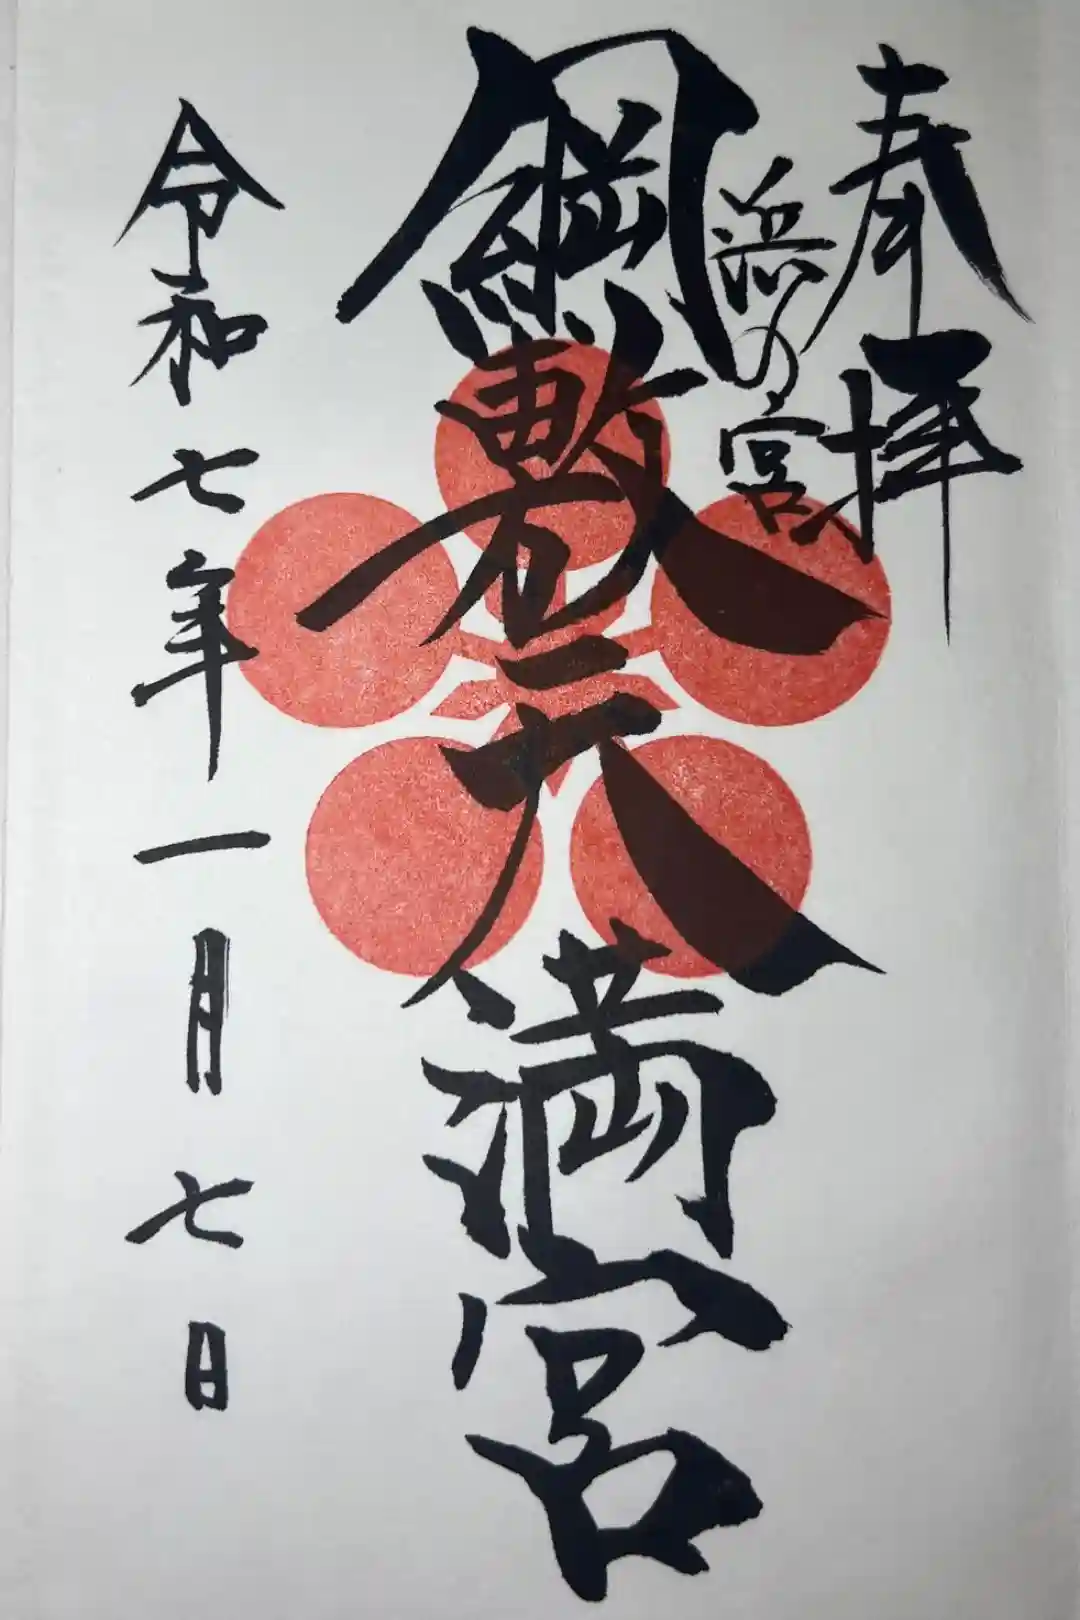 奉拝
浜の宮
鋼敷天満宮
令和七年一月七日